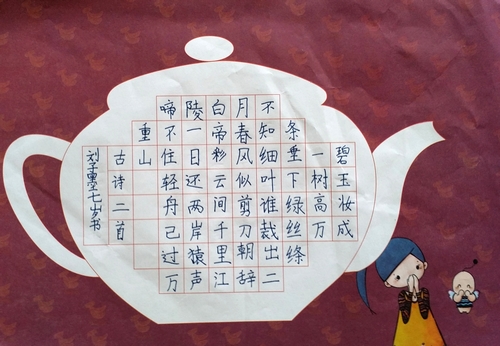 碧玉妆成
一树高万
条垂下绿丝绦
不知细叶谁裁出二
月春风似剪刀朝辞
白帝彩云间千里江
陵一日还两岸猿声
啼不住轻舟己过万
重山
古诗二首
刘子墨七岁书